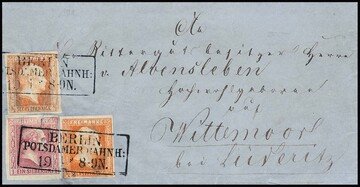 An
Rittergutsbesitzer Herrn
v. Alvensleben
Hochwohlgeboren
auf
Wittemoor
bei Lüderitz
BERLIN
POTSDAMER BAHNH:
8-9N.
BERLIN
POTSDAMER BAHNH:
19 8-9N.